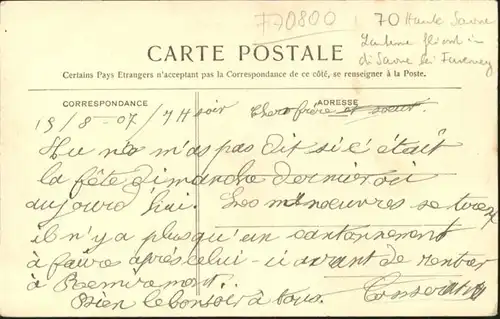 F70800
70 Haute Saone
CARTE POSTALE
Certains Pays Etrangers n'acceptant pas la Correspondance de ce côté, se renseigner à la Poste.
CORRESPONDANCE
ADRESSE
19/8-07/7H soir
Cher frère et sœur.
Tu ne m'as pas dit si c'était
la fête dimanche dernier ou
aujourd'hui. Les manœuvres se tirent
il n'y a plus qu'un cantonnement
à faire après celui-ci avant de rentrer
à Remiremont.
Bien le bonsoir à tous.